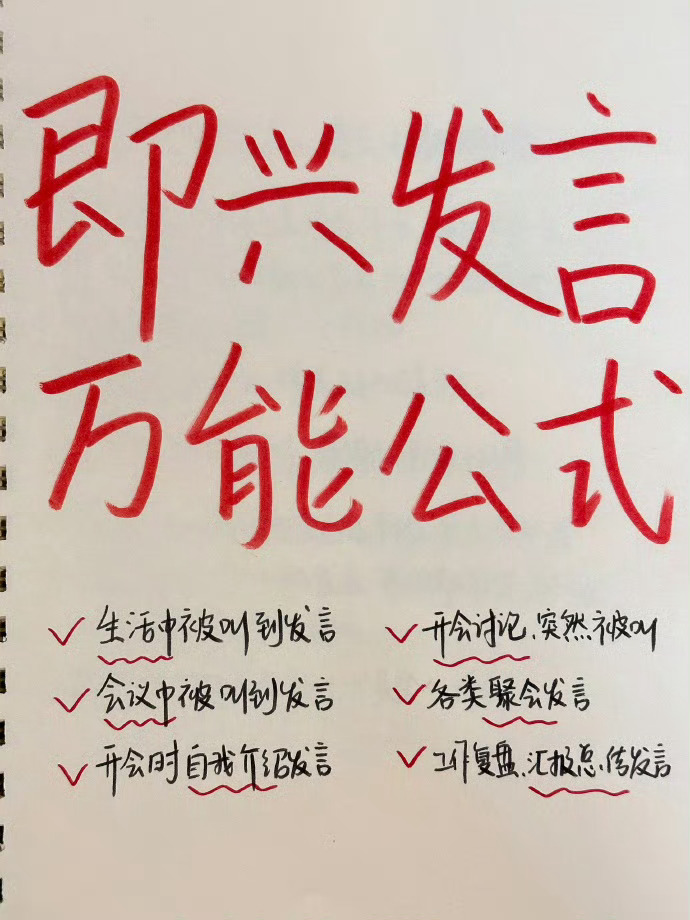 即兴发言
万能公式
生活中被叫到发言
会议中被叫到发言
开会时自我介绍发言
开会讨论、突然被叫
各类聚会发言
工作复盘、汇报总结发言